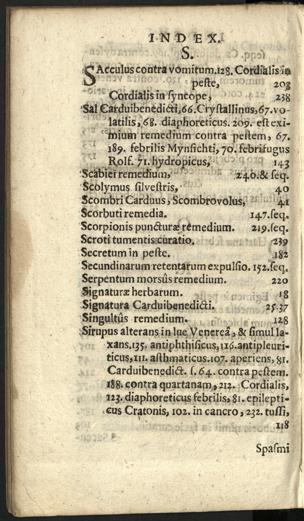 INDEX.
S.
SAcculus contra vomitum. 128. Cordialis in
peste, 203
Cordialis in syncope, 238
Sal Carduibenedicti, 66. Crystallinus, 67. vo-
latilis, 68. diaphoreticus. 209. est exi-
mium remedium contra pestem, 67.
189. febrilis Mynsichti, 70. febrifugus
Rolf. 71. hydropicus, 143
Scabiei remedium, 240. & seq.
Scolymus silvestris, 40
Scombri Carduus, Scombrovolus, 41
Scorbuti remedia. 147. seq.
Scorpionis puncturæ remedium. 219. seq.
Scroti tumentis curatio. 239
Secretum in peste. 182
Secundinarum retentarum expulsio. 152. seq.
Serpentum morsûs remedium. 220
Signaturæ herbarum. 18
Signatura Carduibenedicti. 25. 37
Singultûs remedium. 128
Sirupus alterans in lue Venereâ, & simul la-
xans. 135. antiphthisicus, 116. antipleuri-
ticus, 111. asthmaticus. 107. aperiens, 81.
Carduibenedict. s. 64. contra pestem.
188. contra quartanam, 212. Cordialis,
123. diaphoreticus febrilis, 81. epilepti-
cus Cratonis, 102. in cancro, 232. tussi,
118
Spasmi